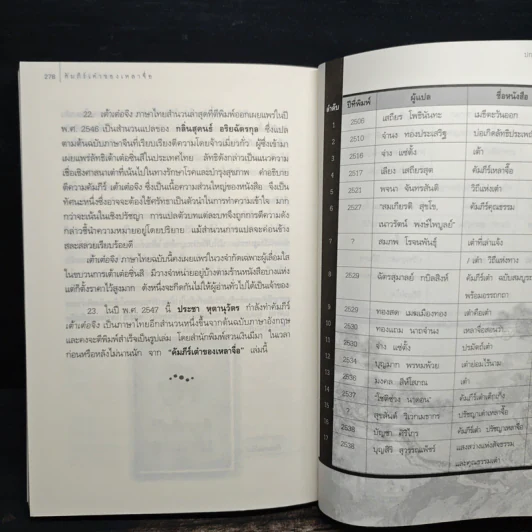 278 คัมภีร์เต๋าของเหลาจื่อ
22. เต้าเต๋อจิง ภาษาไทยสำนวนล่าสุดที่ตีพิมพ์ออกเผยแพร่ในปี
พ.ศ. 2546 เป็นสำนวนแปลของ กลิ่นสุคนธ์ อริยฉัตรกุล ซึ่งแปล
ตามต้นฉบับภาษาจีนที่เรียบเรียงตีความโดยจ้าวเมี่ยวกั่ว ผู้ซึ่งเข้ามา
เผยแพร่ลัทธิเต้าเต๋อซิ่นสีในประเทศไทย ลัทธิดังกล่าวเป็นแนวความ
เชื่อเชิงศาสนาเต๋าที่เน้นไปในทางรักษาโรคและบำรุงสุขภาพ คำอธิบาย
ตีความคัมภีร์ เต้าเต๋อจิง ซึ่งเป็นเนื้อความส่วนใหญ่ของหนังสือ จึงเป็น
ทัศนะหนึ่งซึ่งอาจจะต้องใช้ศรัทธาเป็นตัวนำในการทำความเข้าใจ มาก
กว่าจะเน้นในเชิงปรัชญา การแปลตัวบทแต่ละบทจึงถูกการตีความดัง
กล่าวชี้นำความหมายอยู่โดยปริยาย แม้สำนวนการแปลจะค่อนข้าง
สละสลวยเรียบร้อยดี
เต้าเต๋อจิง ภาษาไทยฉบับนี้คงเผยแพร่ในวงจำกัดเฉพาะผู้เลื่อมใส
ในขบวนการเต้าเต๋อซิ่นสี มีวางจำหน่ายอยู่บ้างตามร้านหนังสือบางแห่ง
แต่ก็ตั้งราคาไว้สูงมาก ดังหนึ่งจะกีดกันไม่ให้ผู้อ่านทั่วไปได้เป็นเจ้าของ
23. ในปี พ.ศ. 2547 นี้ ประชา หุตานุวัตร กำลังทำคัมภีร์
เต้าเต๋อจิง เป็นภาษาไทยอีกสำนวนหนึ่งขึ้นจากต้นฉบับภาษาอังกฤษ
และคงจะตีพิมพ์สำเร็จเป็นรูปเล่ม โดยสำนักพิมพ์สวนเงินมีมา ในเวลา
ก่อนหรือหลังไม่นานนัก จาก "คัมภีร์เต๋าของเหลาจื่อ" เล่มนี้
ลำดับ ปีที่พิมพ์ ผู้แปล ชื่อหนังสือ
1 2506 เสถียร โพธินันทะ เมธีตะวันออก
2 2510 จำนง ทองประเสริฐ บ่อเกิดลัทธิประเพ
3 2516 จ่าง แซ่ตั้ง เต๋า
4 2517 เลียง เสถียรสุต คัมภีร์เหลาจื๊อ
5 2521 พจนา จันทรสันติ วิถีแห่งเต๋า
6 2527 "สมเกียรติ สุขโข, คัมภีร์คุณธรรม
เนาวรัตน์ พงษ์ไพบูลย์"
7 ? สมภพ โรจนพันธุ์ เต๋าที่เล่าแจ้ง
/ เต๋า วิถีแห่งทาง
8 2529 ฉัตรสุมาลย์ กบิลสิงห์ คัมภีร์เต๋า ฉบับสมบูรณ์
พร้อมอรรถกถา
2529 ทองสด เมฆเมืองทอง เต๋าคือเต๋า
2530 ทองแถม นาถจำนง
2530 จ่าง แซ่ตั้ง ปรมัตถ์เต๋า
2534 บุญมาก พรหมพ้วย เต๋าย่อมไร้นาม
2536 มงคล สีห์โสภณ เต๋า
2537 "โชติช่วง นาดอน"
? สุขสันต์ วิเวกเมธากร ปรัชญาเต๋าเหลาจื๊อ
2538 บัญชา ศิริไกร
17 2538 บุญสิริ สุวรรณเพ็ชร์ แสงสว่างแห่งสัจธรรม
และคุณธรรมเต๋า